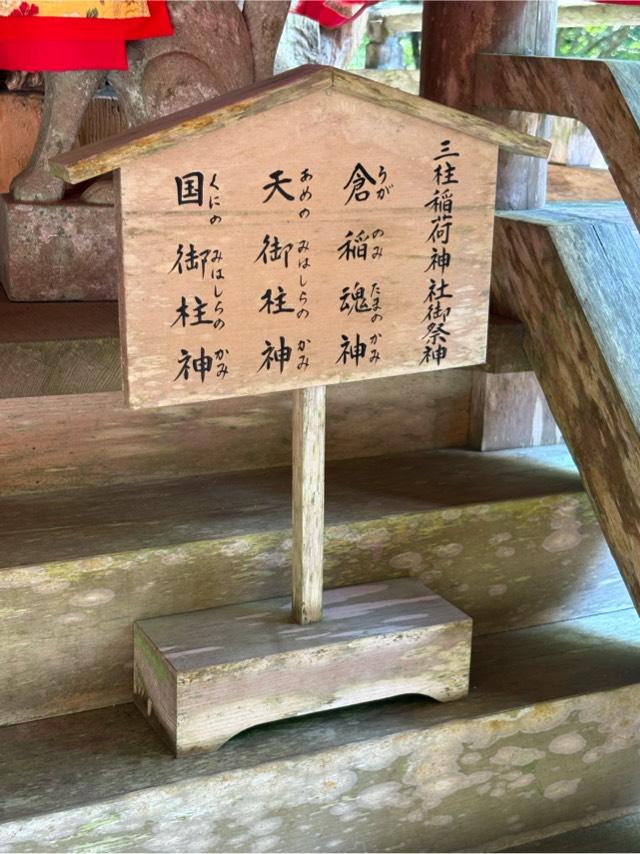 三柱稲荷神社御祭神
倉稲魂神
うが のみ たまの かみ
天御柱神
あめの みはしらの かみ
国御柱神
くにの みはしらの かみ